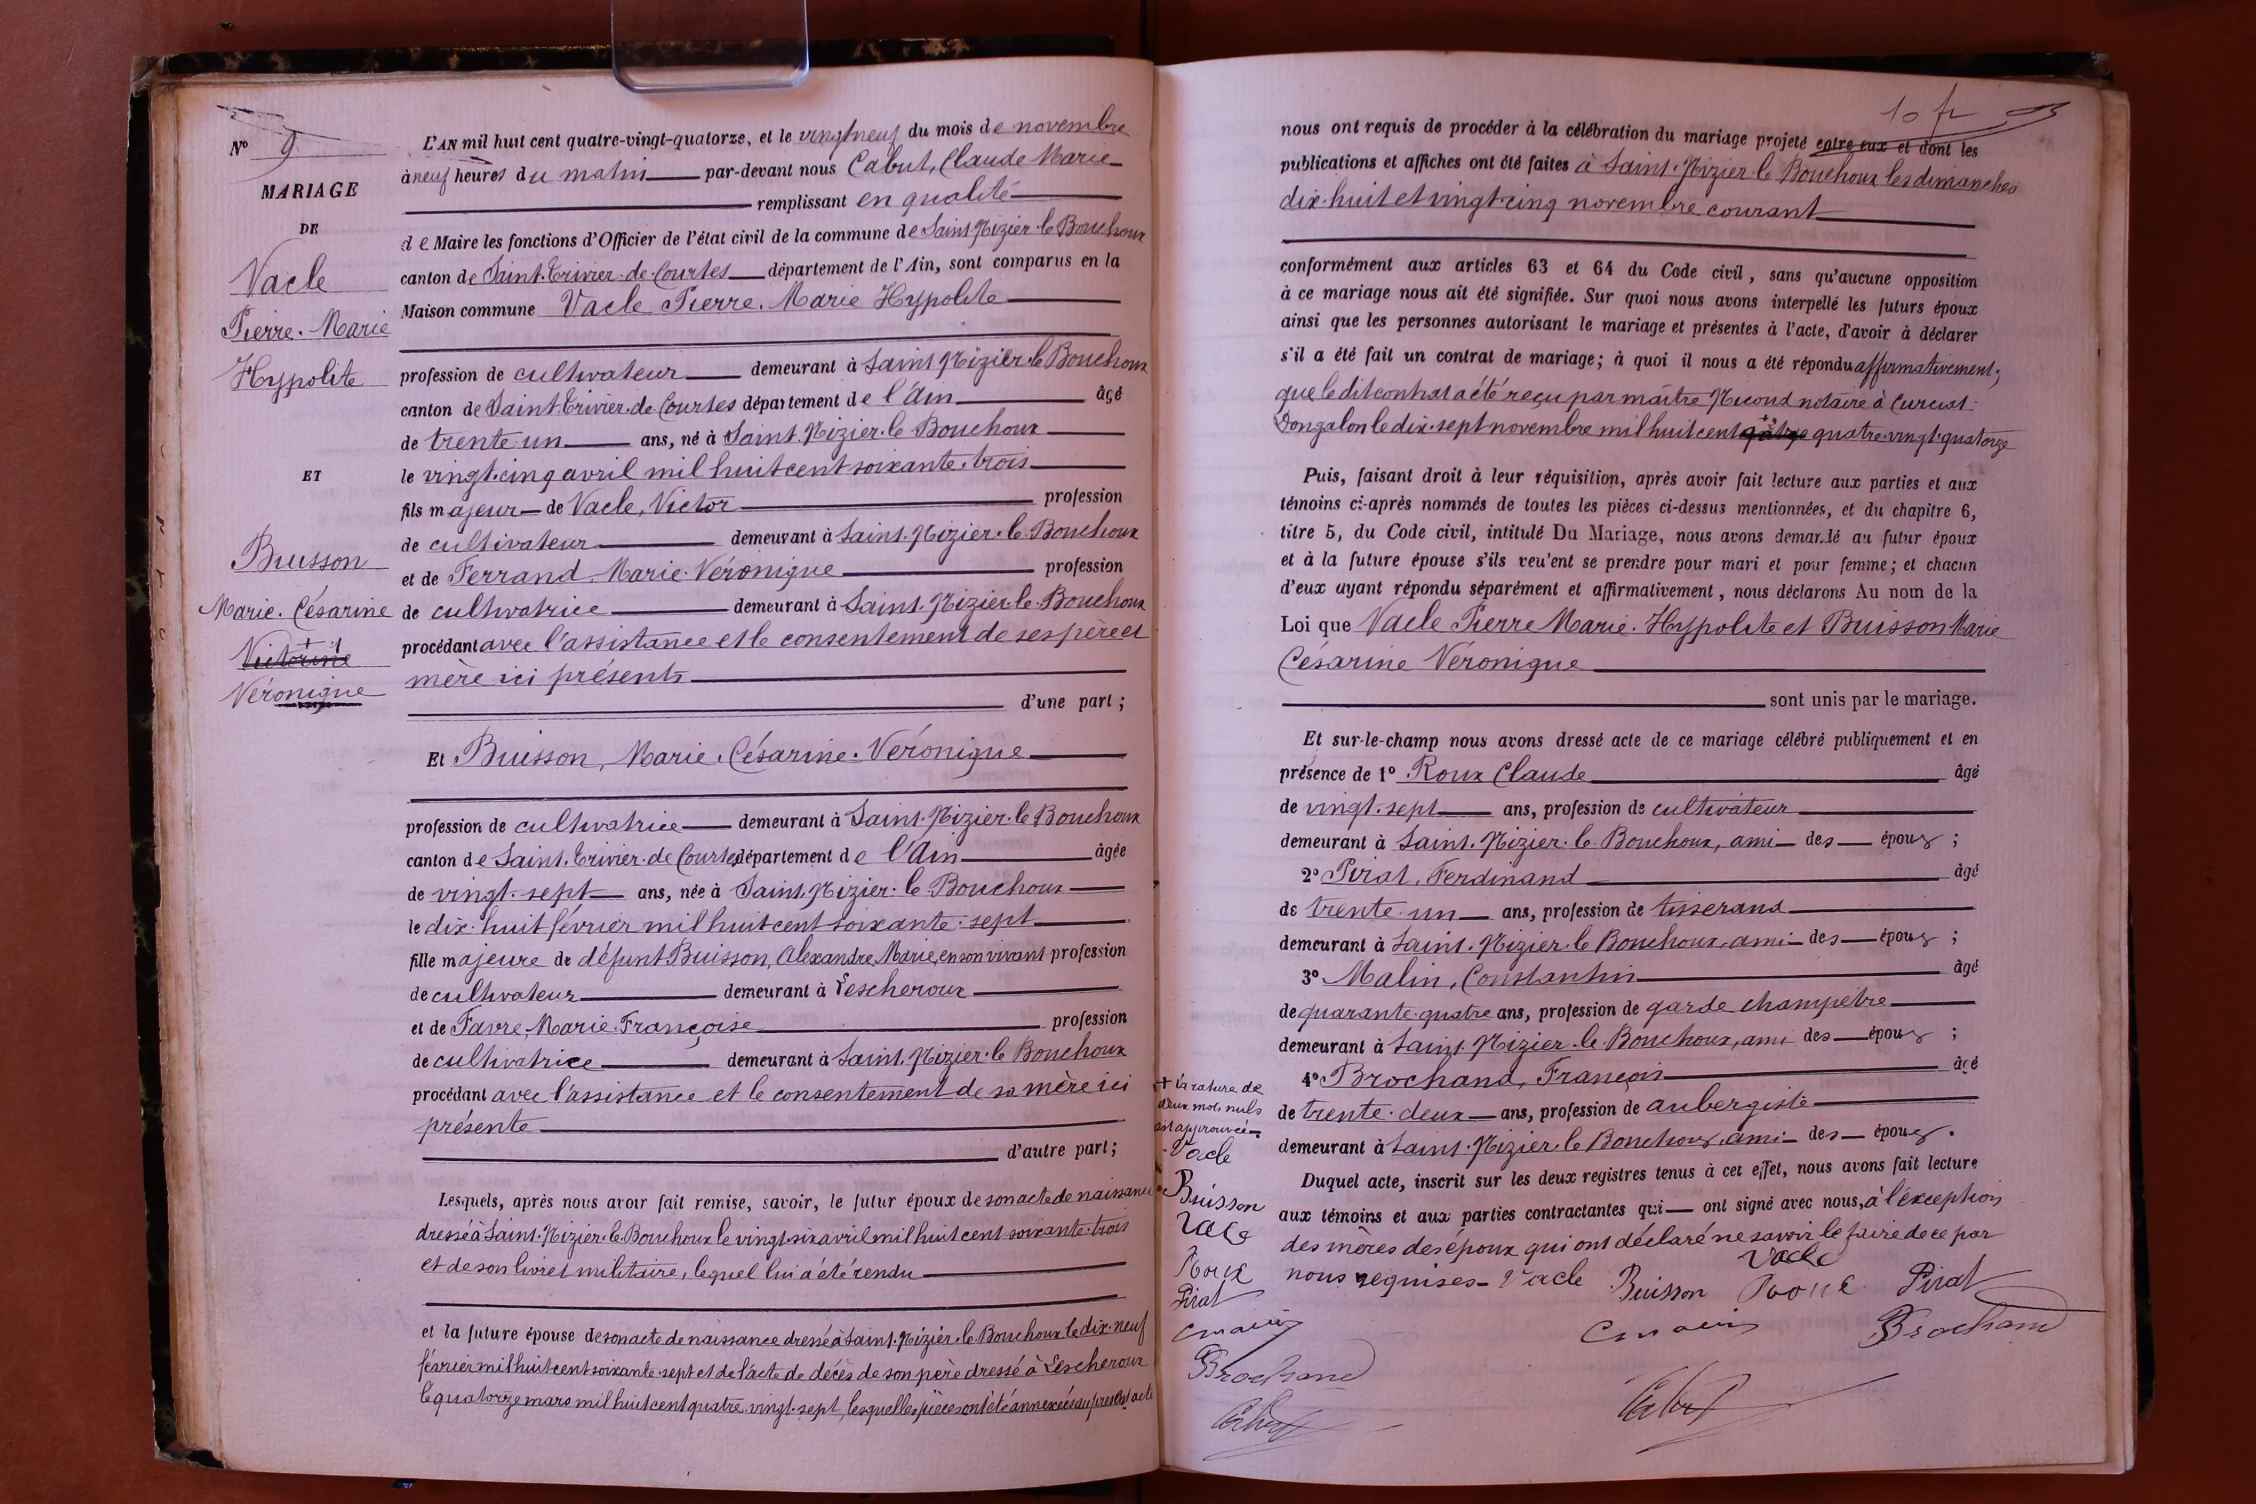 Nº 9
MARIAGE
DE
Vacle
Pierre. Marie
Hypolite
ET
Buisson
Marie. Césarine
Victorine
Véronique
L'AN mil huit cent quatre-vingt-quatorze, et le vingt neuf du mois de novembre
à neuf heures du matin par-devant nous Cabut, Claude Marie
remplissant en qualité
de Maire les fonctions d'Officier de l'état civil de la commune de Saint. Nizier. le Bouchoux
canton de Saint. Trivier. de. Courtes département de l'Ain, sont comparus en la
Maison commune Vacle Pierre. Marie Hypolite
profession de cultivateur demeurant à Saint Nizier. le Bouchoux
canton de Saint. Trivier. de Courtes département de l'Ain âgé
de trente un ans, né à Saint. Nizier. le Bouchoux
le vingt. cinq avril mil huit cent soixante. trois
fils majeur de Vacle, Victor profession
de cultivateur demeurant à Saint. Nizier. le. Bouchoux
et de Ferrand, Marie. Véronique profession
de cultivatrice demeurant à Saint. Nizier. le. Bouchoux
procédant avec l'assistance et le consentement de ses père et
mère ici présents
d'une part ;
Et Buisson, Marie. Césarine. Véronique
profession de cultivatrice demeurant à Saint. Nizier. le Bouchoux
canton de Saint. Trivier. de Courtes département de l'Ain âgée
de vingt. sept ans, née à Saint. Nizier. le Bouchoux
le dix. huit février mil huit cent soixante. sept
fille majeure de défunt Buisson, Alexandre, Marie, en son vivant profession
de cultivateur demeurant à Lescheroux
et de Favre, Marie. Françoise profession
de cultivatrice demeurant à Saint. Nizier. le Bouchoux
procédant avec l'assistance et le consentement de sa mère ici
présente
d'autre part ;
Lesquels, après nous avoir fait remise, savoir, le futur époux de son acte de naissance
dressé à Saint. Nizier. le. Bouchoux le vingt. six avril mil huit cent soixante. trois
et de son livret militaire, lequel lui a été rendu
et la future épouse de son acte de naissance dressé à Saint. Nizier. le Bouchoux le dix. neuf
février mil huit cent soixante. sept et de l'acte de décès de son père dressé à Lescheroux
le quatorze mars mil huit cent quatre. vingt. sept, lesquelles pièces ont été annexées au présent acte
10 fr
nous ont requis de procéder à la célébration du mariage projeté entre eux et dont les
publications et affiches ont été faites à Saint. Nizier. le Bouchoux les dimanches
dix. huit et vingt. cinq novembre courant
conformément aux articles 63 et 64 du Code civil, sans qu'aucune opposition
à ce mariage nous ait été signifiée. Sur quoi nous avons interpellé les futurs époux
ainsi que les personnes autorisant le mariage et présentes à l'acte, d'avoir à déclarer
s'il a été fait un contrat de mariage ; à quoi il nous a été répondu affirmativement ;
que le dit contrat a été reçu par maître Nicoud notaire à Curciat.
Dongalon le dix. sept novembre mil huit cent quatre. vingt. quatorze
Puis, faisant droit à leur réquisition, après avoir fait lecture aux parties et aux
témoins ci-après nommés de toutes les pièces ci-dessus mentionnées, et du chapitre 6,
titre 5, du Code civil, intitulé Du Mariage, nous avons demandé au futur époux
et à la future épouse s'ils veulent se prendre pour mari et pour femme ; et chacun
d'eux ayant répondu séparément et affirmativement, nous déclarons Au nom de la
Loi que Vacle Pierre Marie. Hypolite et Buisson Marie
Césarine Véronique
sont unis par le mariage.
Et sur-le-champ nous avons dressé acte de ce mariage célébré publiquement et en
présence de 1º Roux Claude âgé
de vingt. sept ans, profession de cultivateur
demeurant à Saint. Nizier. le. Bouchoux, ami des époux ;
2º Pirat, Ferdinand âgé
de trente. un ans, profession de tisserand
demeurant à Saint. Nizier. le Bouchoux, ami des époux ;
3º Malin, Constantin âgé
de quarante. quatre ans, profession de garde champêtre
demeurant à Saint. Nizier. le. Bouchoux, ami des époux ;
4º Brochand, François âgé
de trente. deux ans, profession de aubergiste
demeurant à Saint. Nizier. le Bouchoux, ami des époux.
Duquel acte, inscrit sur les deux registres tenus à cet effet, nous avons fait lecture
aux témoins et aux parties contractantes qui ont signé avec nous, à l'exception
des mères des époux qui ont déclaré ne savoir le faire de ce par
nous requises. Vacle Buisson Vacle Roux Pirat
Cmalin Brochand
Cabut
+ la rature de
deux mots nuls
est approuvée
Vacle
Buisson
Vacle
Roux
Pirat
Cmalin
Brochand
Cabut